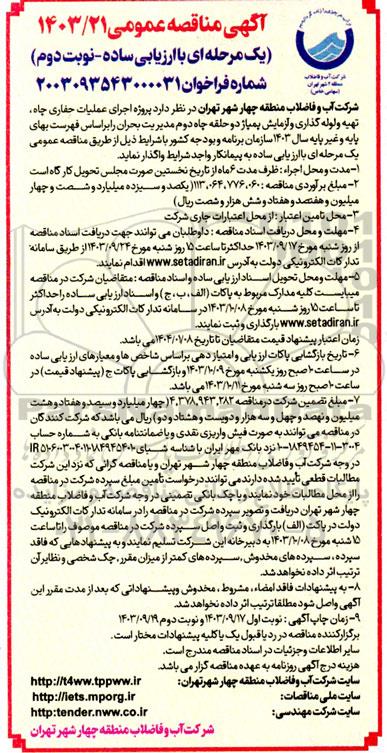 آگهی مناقصه عمومی ۱۴۰۳/۲۱
(یک مرحله ای با ارزیابی ساده-نوبت دوم)
شماره فراخوان ۲۰۰۳۰۹۳۵۴۳۰۰۰۰۳۱
شرکت آب و فاضلاب
منطقه ۴ شهر تهران
(سهامی خاص)
شرکت آب و فاضلاب منطقه چهار شهر تهران در نظر دارد پروژه اجرای عملیات حفاری چاه،
تهیه و لوله گذاری و آزمایش پمپاژ دو حلقه چاه دوم مدیریت بحران را براساس فهرست بهای
پایه و غیر پایه سال ۱۴۰۳ سازمان برنامه و بودجه کشور باشرایط ذیل از طریق مناقصه عمومی
یک مرحله ای با ارزیابی ساده به پیمانکار واجد شرایط واگذار نماید.
۱-مدت و محل اجراء : ظرف مدت ۶ ماه از تاریخ نخستین صورت مجلس تحویل کار گاه است
۲- مبلغ برآوردی مناقصه : ۱۱۳,۰۶۴,۷۷۶,۰۶۰ (یکصد و سیزده میلیارد و شصت و چهار
میلیون و هفتصد و هفتاد و شش هزار و شصت ریال)
۳-محل تامین اعتبار : از محل اعتبارات جاری شرکت
۴-مهلت و محل دریافت اسناد مناقصه : داوطلبان می توانند جهت دریافت اسناد مناقصه
از روز شنبه مورخ ۱۴۰۳/۰۹/۱۷ حداکثر تا ساعت ۱۵ روز شنبه مورخ ۱۴۰۳/۰۹/۲۴ از طریق سامانه
تدارکات الکترونیکی دولت به آدرس www.setadiran.ir اقدام نمایند.
۵-مهلت و محل تحویل اسناد ارزیابی ساده و اسناد مناقصه : متقاضیان شرکت در مناقصه
میبایست کلیه مدارک مربوط به پاکات (الف، ب، ج) و اسناد ارزیابی ساده را حداکثر
تا ساعت ۱۵ روز شنبه مورخ ۱۴۰۳/۱۰/۰۸ در سامانه تدارکات الکترونیکی دولت به آدرس
www.setadiran.ir بارگذاری و ثبت نمایند.
زمان اعتبار پیشنهاد قیمت متقاضیان تا تاریخ ۱۴۰۴/۰۱/۰۸ می باشد.
۶- تاریخ بازگشایی پاکات ارزیابی و امتیاز دهی براساس شاخص ها و معیارهای ارزیابی ساده
در ساعت ۱۰ صبح روز یکشنبه مورخ ۱۴۰۳/۱۰/۰۹ و بازگشایی پاکات ج (پیشنهاد قیمت) در
ساعت ۱۰ صبح روز سه شنبه مورخ ۱۴۰۳/۱۰/۱۱ می باشد.
۷- مبلغ تضمین شرکت در مناقصه ۴,۳۷۸,۹۴۳,۲۸۲ (چهار میلیارد و سیصد و هفتاد و هشت
میلیون و نهصد و چهل و سه هزار و دویست و هشتاد و دو) ریال می باشد که شرکت کنندگان
در مناقصه می توانند به صورت فیش واریزی نقدی و یا ضمانتنامه بانکی به شماره حساب
نزد بانک مهر ایران با شناسه شبای
در وجه شرکت آب و فاضلاب منطقه چهار شهر تهران و یا مناقصه گرانی که نزد این شرکت
مطالبات قطعی تأیید شده دارند می توانند درخواست تأمین مبلغ سپرده شرکت در مناقصه
را از محل مطالبات خود نمایند و یا چک بانکی تضمینی در وجه شرکت آب و فاضلاب منطقه
چهار شهر تهران دریافت و تصویر سپرده شرکت در مناقصه را در سامانه تدارکات الکترونیکی
دولت در پاکت (الف) بارگذاری و ثبت و اصل سپرده شرکت در مناقصه موصوف را تا ساعت
۱۵ شنبه مورخ ۱۴۰۳/۱۰/۰۸ به دبیرخانه این شرکت تسلیم نمایند و به پیشنهادهایی که فاقد
سپرده ، سپرده های مخدوش ، سپرده های کمتر از میزان مقرر، چک شخصی و نظایر آن
ترتیب اثر داده نخواهد شد.
۸- به پیشنهادات فاقد امضاء ، مشروط ، مخدوش و پیشنهاداتی که بعد از مدت مقرر این
آگهی واصل شود مطلقا ترتیب اثر داده نخواهد شد.
۹- زمان چاپ آگهی : نوبت اول ۱۴۰۳/۰۹/۱۷ و نوبت دوم ۱۴۰۳/۰۹/۱۹
برگزار کننده مناقصه در رد یا قبول یک یا کلیه پیشنهادات مختار است.
سایر اطلاعات و جزئیات در اسناد مناقصه مندرج است.
هزینه درج آگهی روزنامه به عهده مناقصه گزار می باشد.
سایت شرکت آب و فاضلاب منطقه چهار شهر تهران: http://t4ww.tppww.ir
سایت ملی مناقصات: http://iets.mporg.ir
سایت شرکت مهندسی: http:tender.nww.co.ir
شرکت آب و فاضلاب منطقه چهار شهر تهران